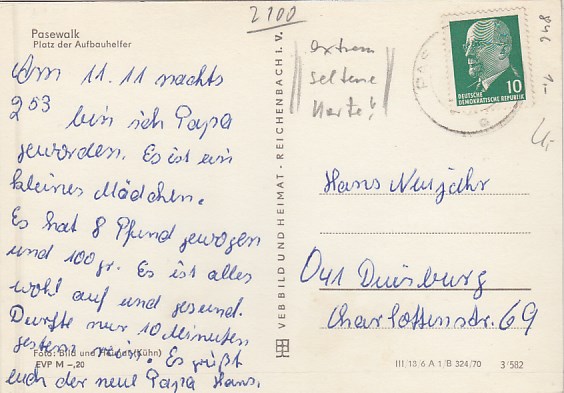 Pasewalk
Platz der Aufbauhelfer
Am 11.11 nachts
2 53 bin ich Papa
geworden. Es ist ein
kleines Mädchen.
Es hat 8 Pfund gewogen
und 100gr. Es ist alles
wohl auf und gesund.
Durfte nur 10 Minuten
gestern rein. Es grüßt
euch der neue Papa Hans.
Foto: Bild und Heimat (Kühn)
EVP M –,20
VEB BILD UND HEIMAT · REICHENBACH I. V.
2100
extrem
seltene
Karte!
PAS
10
DEUTSCHE
DEMOKRATISCHE REPUBLIK
846
1–
Hans Neujahr
041 Duisburg
Charlottenstr. 69
III/18/6 A 1/B 324/70 3/582